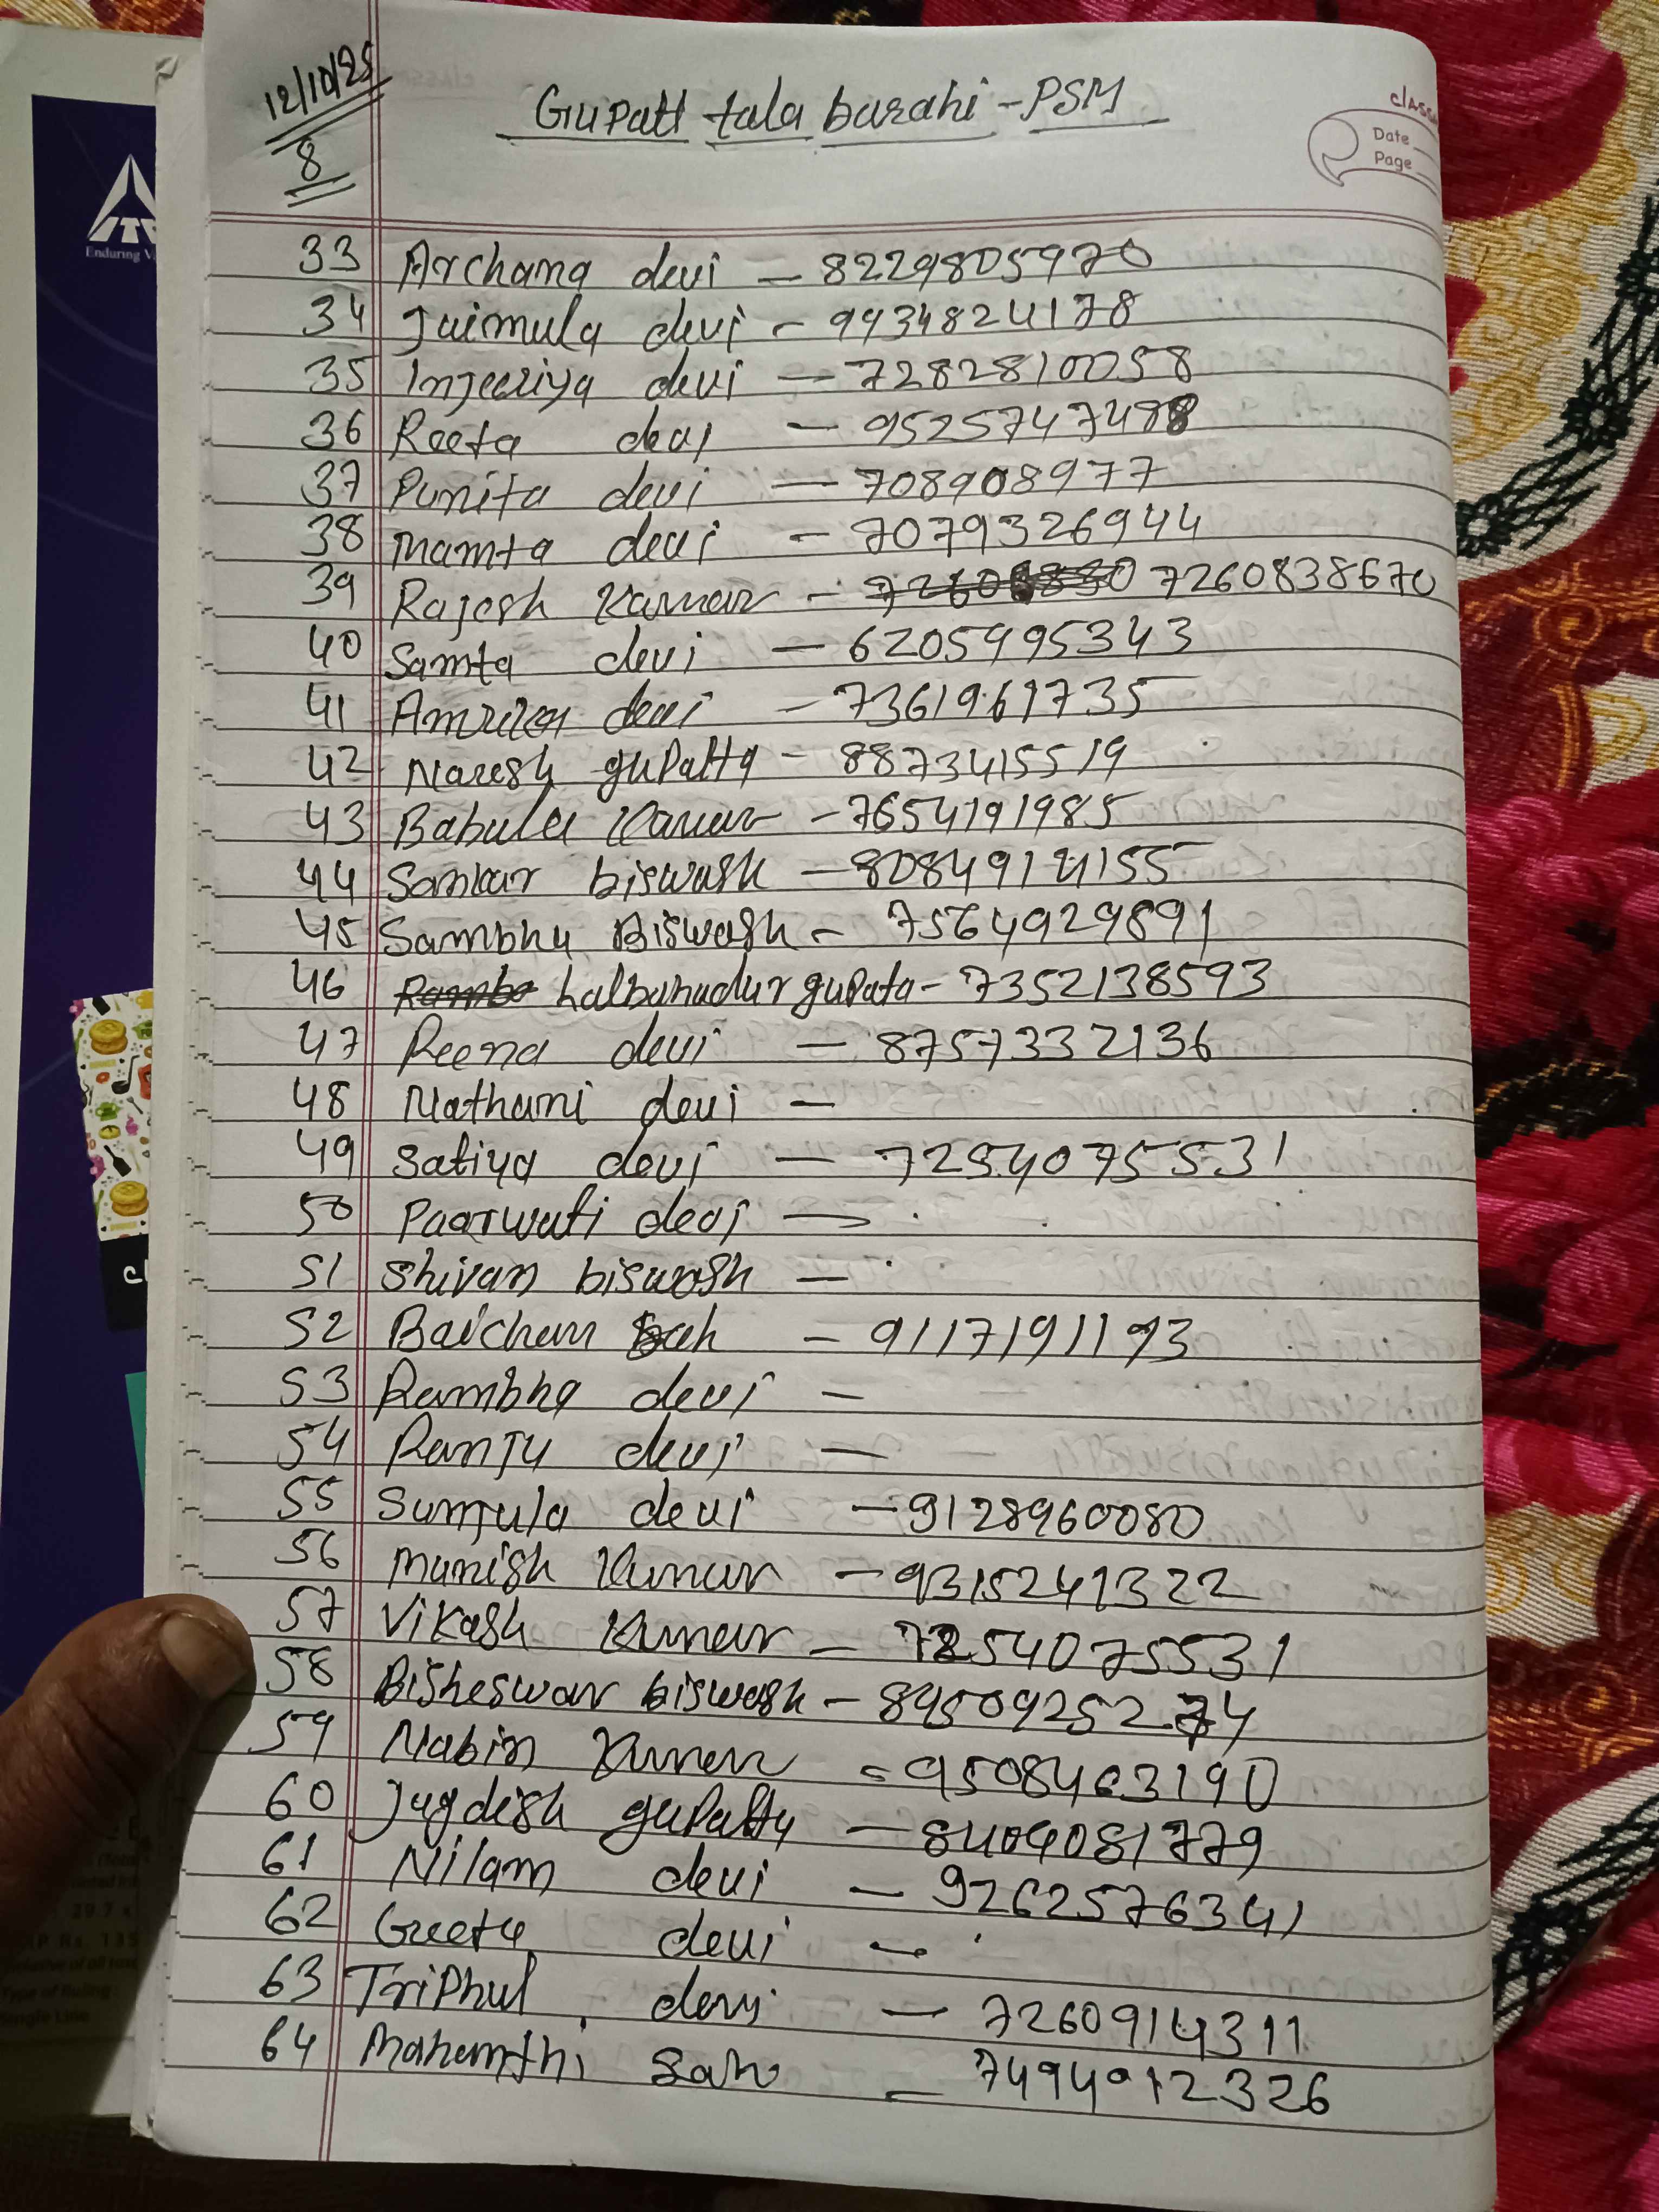 12/10/25
8
Gupatt tala barahi - PSM
classm
Date
Page
ITC
Enduring V
33 Archana devi - 8229805970
34 Jaimula devi - 9934824178
35 Injeeriya devi - 7282810058
36 Reeta devi - 9525747488
37 Punita devi - 708908977
38 Mamta devi - 7079326944
39 Rajesh Kumar - 7260838670
40 Samta devi - 6205995343
41 devi - 7361961735
42 Naresh gupatta - 8873415519
43 Babulal Kumar - 7654191985
44 Sankar biswash - 8084914155
45 Sambhu Biswash - 7564929891
46 Lalbahadur gupata - 7352138593
47 Reena devi - 8757332136
48 Nathani devi -
49 Satiya devi - 7254075531
50 Paarwati devi -
51 Shivan biswash -
52 Baichan Sah - 9117191193
53 Rambha devi -
54 Ranju devi -
55 Sunjula devi - 9128960080
56 Manish Kumar - 9315241322
57 Vikash Kumar - 7254075531
58 Bisheswar biswash - 8950925274
59 Nabin Kumar - 9508463190
60 Jugdish gupatta - 8409081779
61 Nilam devi - 9262576341
62 Geeta devi -
63 Triphul devi - 7260914311
64 Mahanthi Sah - 7494912326